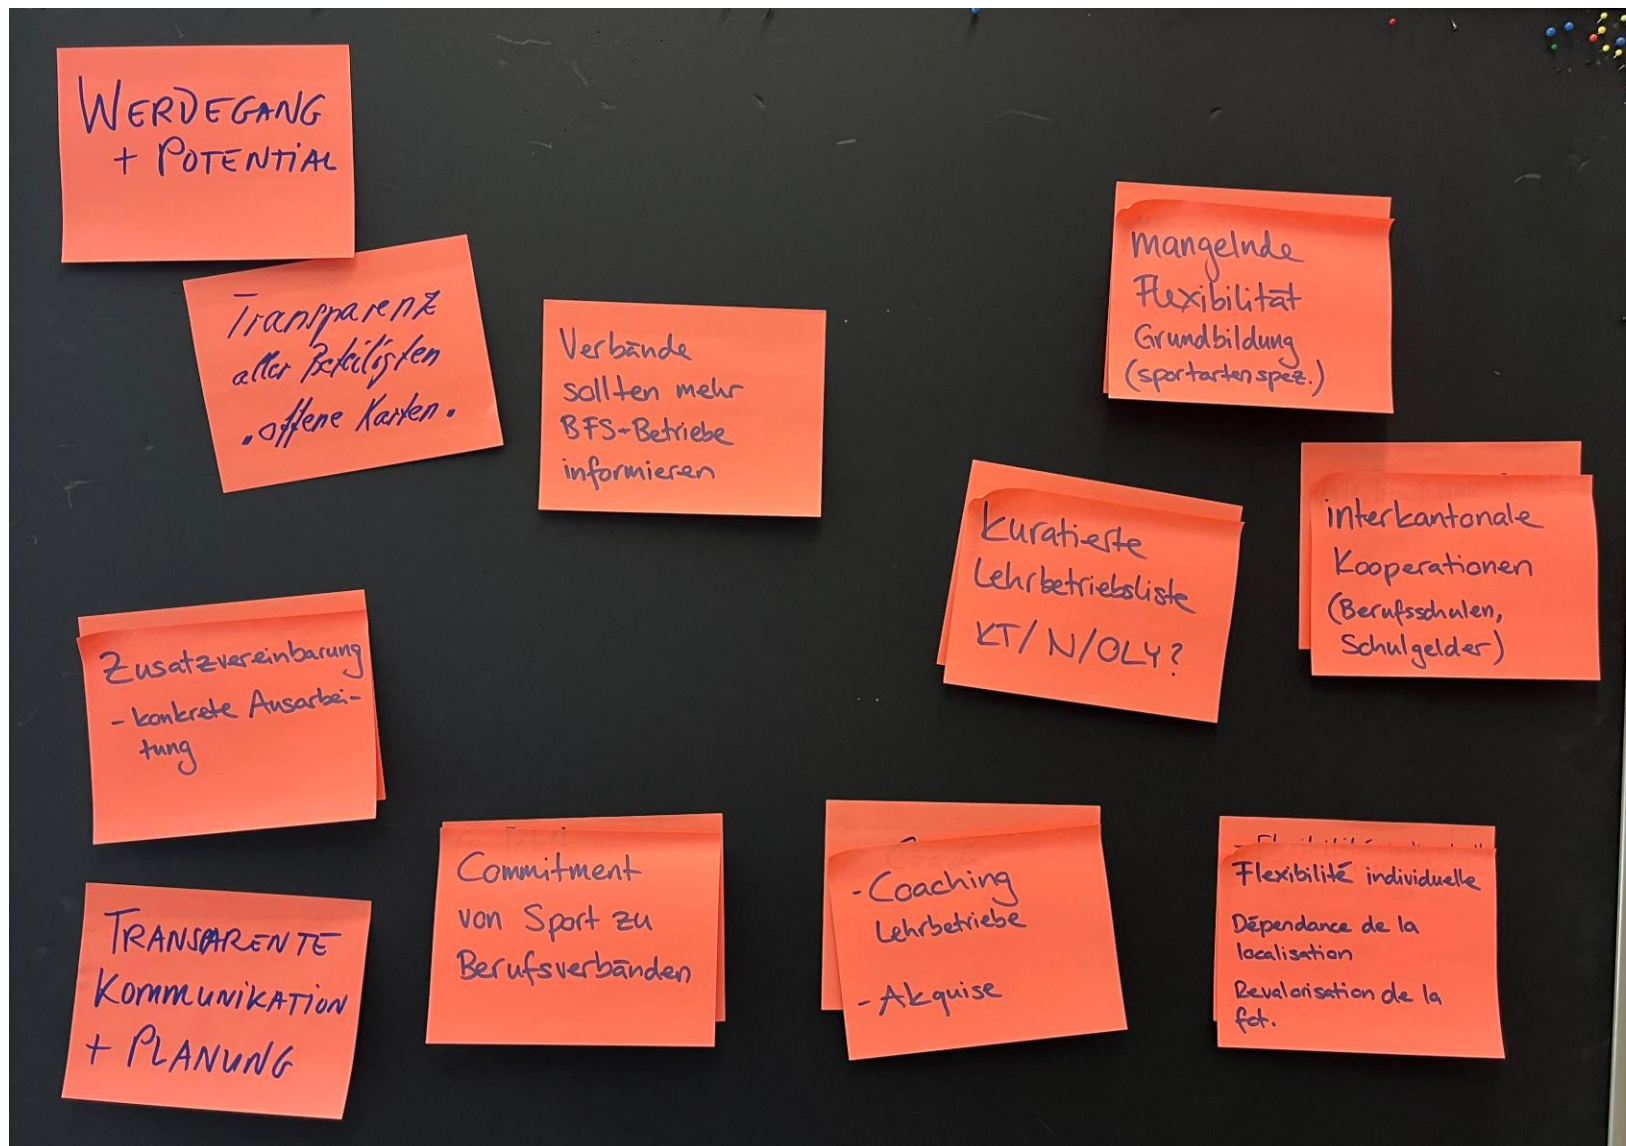 WERDEGANG
+ POTENTIAL
Transparenz
aller Beteiligten
"offene Karten"
Verbände
sollten mehr
BFS+Betriebe
informieren
mangelnde
Flexibilität
Grundbildung
(sportartenspez.)
kuratierte
Lehrbetriebsliste
KT/N/OLY?
interkantonale
Kooperationen
(Berufsschulen,
Schulgelder)
Zusatzvereinbarung
- konkrete Ausarbei-
tung
TRANSPARENTE
KOMMUNIKATION
+ PLANUNG
Commitment
von Sport zu
Berufsverbänden
- Coaching
Lehrbetriebe
- Akquise
Flexibilité individuelle
Dépendance de la
localisation
Revalorisation de la